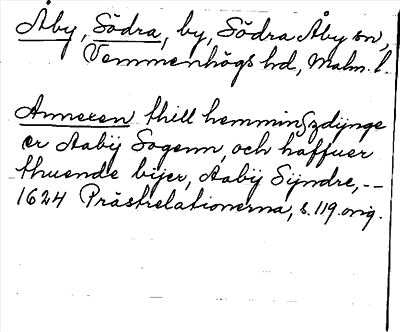 Åby, Södra, by, Södra Åby sn,
Vemmenhögs hd, Malm. l.
Annexen thill hemmingzdynge
er Aabÿ Sogenn, och haffuer
thuende bijer, Aabÿ Sÿndre, --
1624 Prästrelationerna, s. 119 orig.